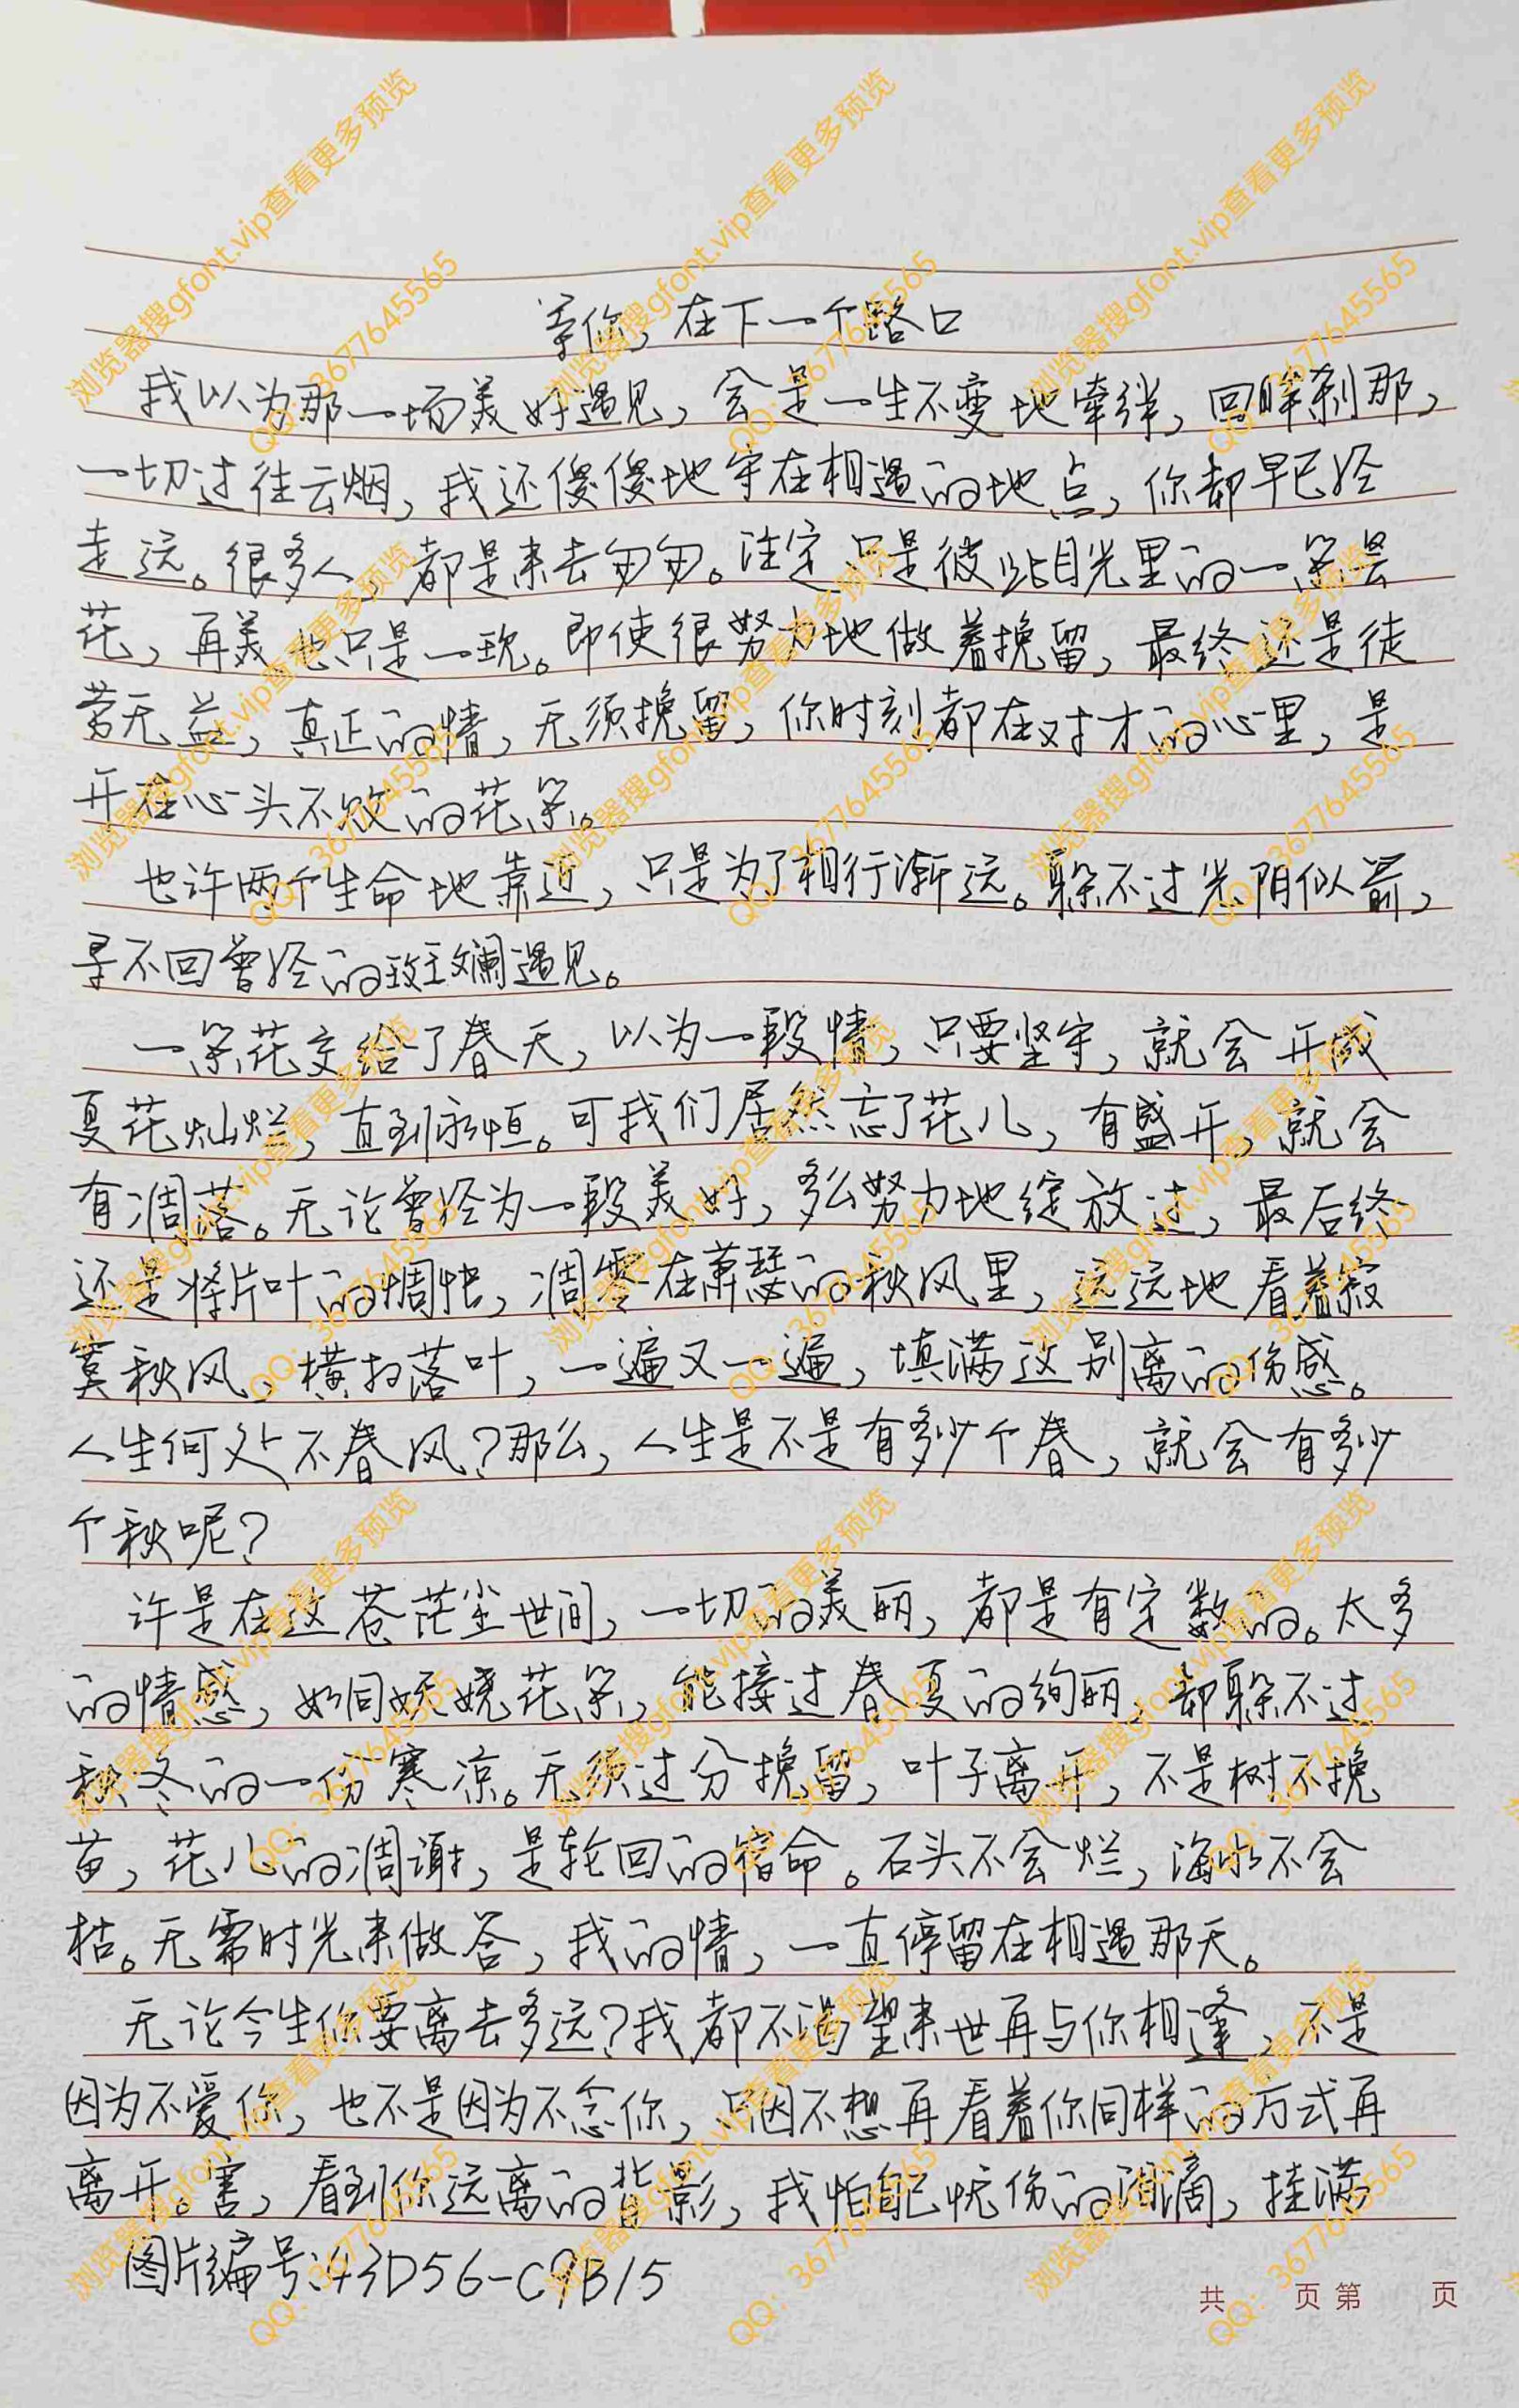 等你，在下一个路口
我以为那一场美好遇见，会是一生不变地牵绊，回眸刹那，
一切过往云烟，我还傻傻地守在相遇的地点，你却早已经
走远。很多人，都是来去匆匆。注定只是彼此目光里的一朵昙
花，再美也只是一现。即使很努力地做着挽留，最终还是徒
劳无益，真正的情，无须挽留，你时刻都在对才的心里，是
开在心头不败的花朵。
也许两个生命地靠近，只是为了相行渐远。躲不过光阴似箭，
寻不回曾经的斑斓遇见。
一朵花交给了春天，以为一段情，只要坚守，就会开成
夏花灿烂，直到永恒。可我们居然忘了花儿，有盛开，就会
有凋落。无论曾经为一段美好，多么努力地绽放过，最后终
还是将片叶的惆怅，凋零在萧瑟的秋风里，远远地看着寂
寞秋风，横扫落叶，一遍又一遍，填满这别离的伤感。
人生何处不春风？那么，人生是不是有多少个春，就会有多少
个秋呢？
许是在这苍茫尘世间，一切的美丽，都是有定数的。太多
的情感，如同妖娆花朵，能接过春夏的绚丽，却躲不过
秋冬的一份寒凉。无须过分挽留，叶子离开，不是树不挽
苗，花儿的凋谢，是轮回的宿命。石头不会烂，海水不会
枯。无需时光来做答，我的情，一直停留在相遇那天。
无论今生你要离去多远？我都不渴望来世再与你相逢，不是
因为不爱你，也不是因为不念你，只因不想再看着你同样的方式再
离开。害，看到你远离的背影，我怕自己忧伤的泪滴，挂满
图片编号：43D56-C9B15
共 页 第 页
浏览器搜gfont.vip查看更多预览
QQ：3677645565